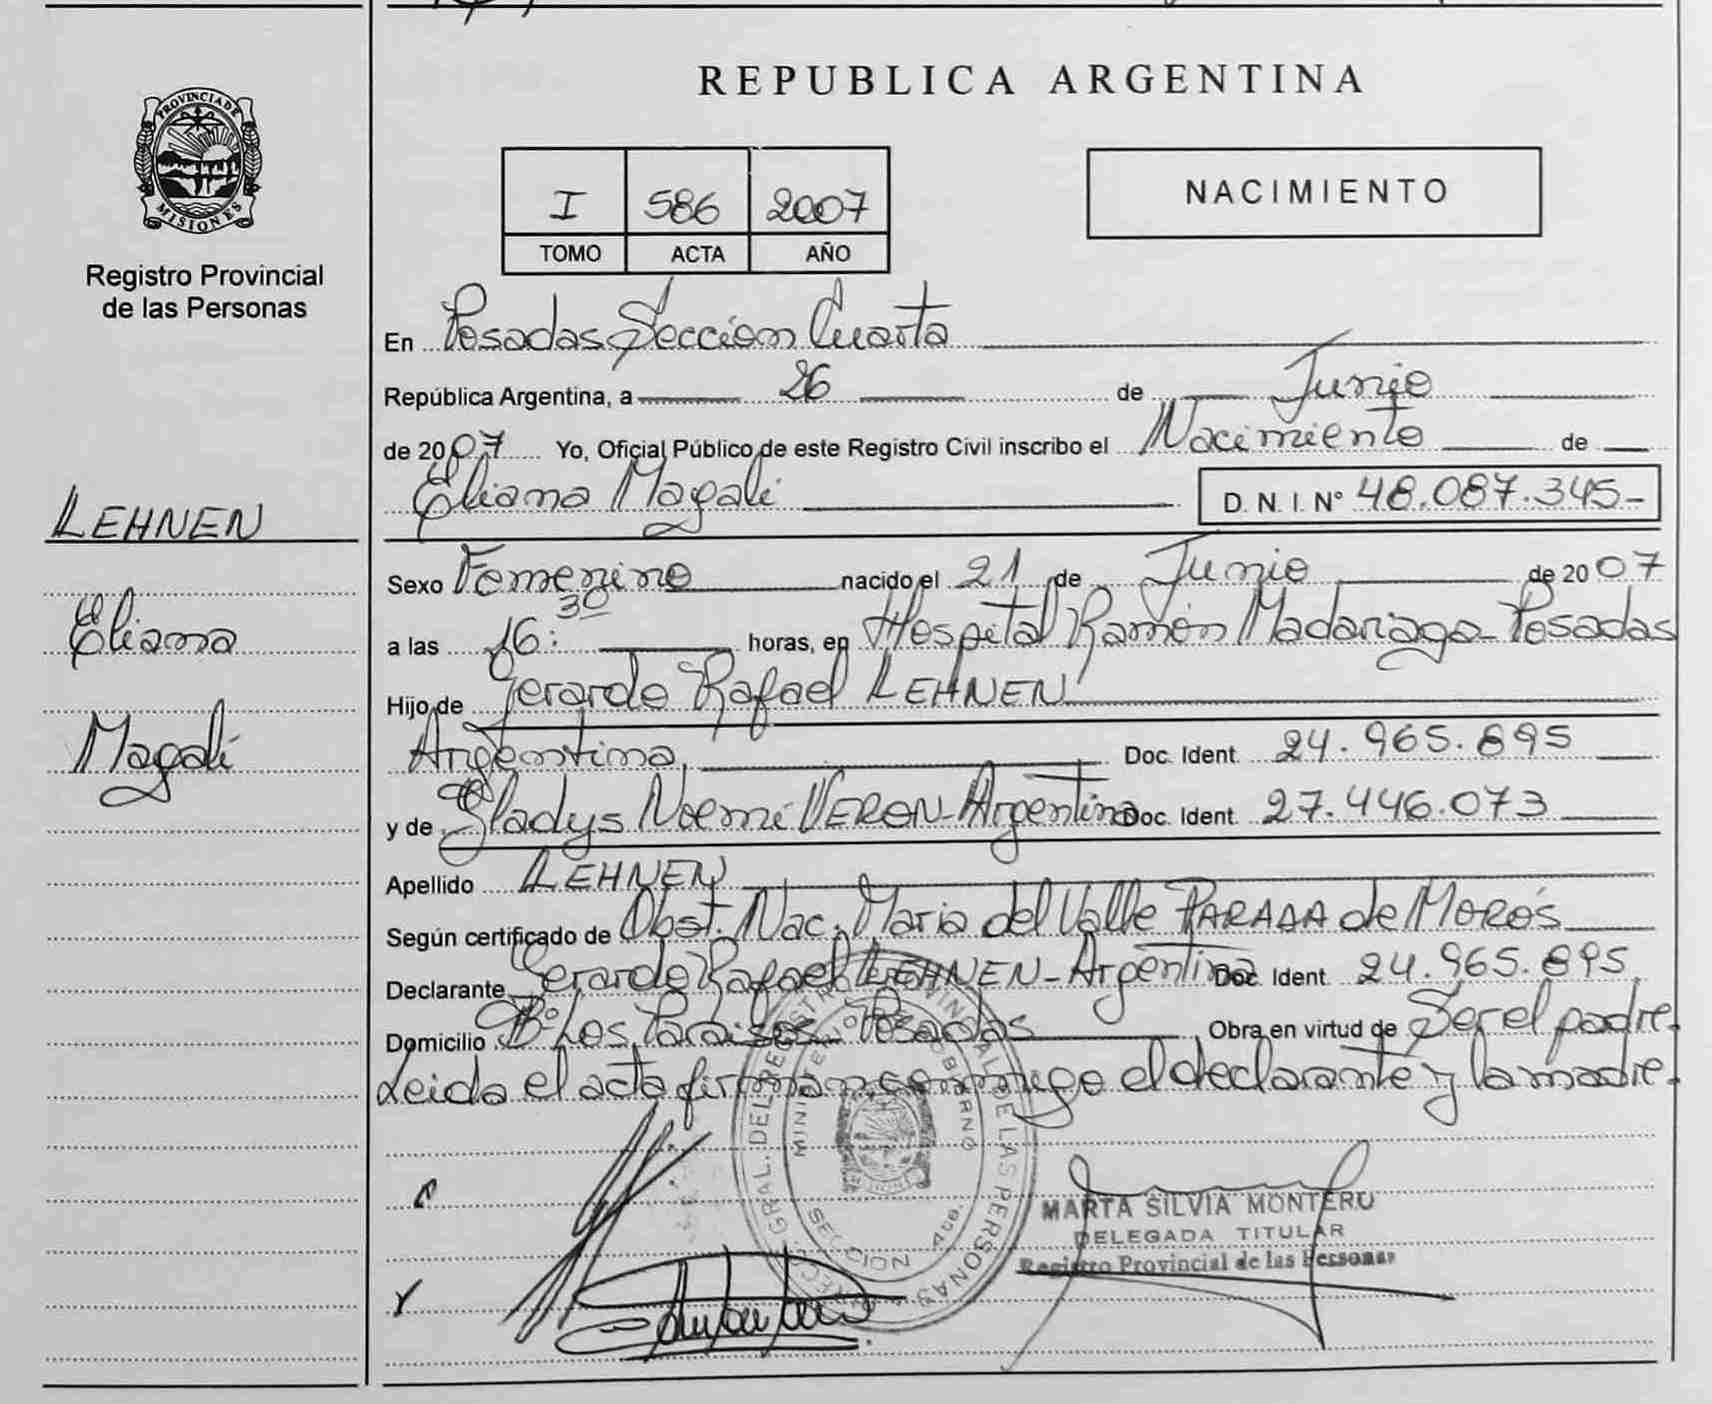 REPUBLICA ARGENTINA
PROVINCIA DE
MISIONES
Registro Provincial
de las Personas
I 586 2007
TOMO ACTA AÑO
NACIMIENTO
En Posadas Sección Cuarta
República Argentina, a 26 de Junio
de 2007 Yo, Oficial Público de este Registro Civil inscribo el Nacimiento de
Eliana Magalí D. N. I. Nº 48.087.345-
LEHNEN
Eliana
Magalí
Sexo Femenino nacido el 21 de Junio de 2007
a las 16:30 horas, en Hospital Ramón Madariaga - Posadas
Hijo de Gerardo Rafael LEHNEN
Argentina, Doc. Ident. 24.965.895
y de Gladys Noemí VERON - Argentina Doc. Ident. 27.446.073
Apellido LEHNEN
Según certificado de Obst. Nac. Maria del Valle PARADA de MOROS
Declarante Gerardo Rafael LEHNEN - Argentina Doc. Ident. 24.965.895
Domicilio Bº Los Paraisos - Posadas Obra en virtud de Ser el padre.
Leida el acta firman conmigo el declarante y la madre.
MARTA SILVIA MONTERO
DELEGADA TITULAR
Registro Provincial de las Personas